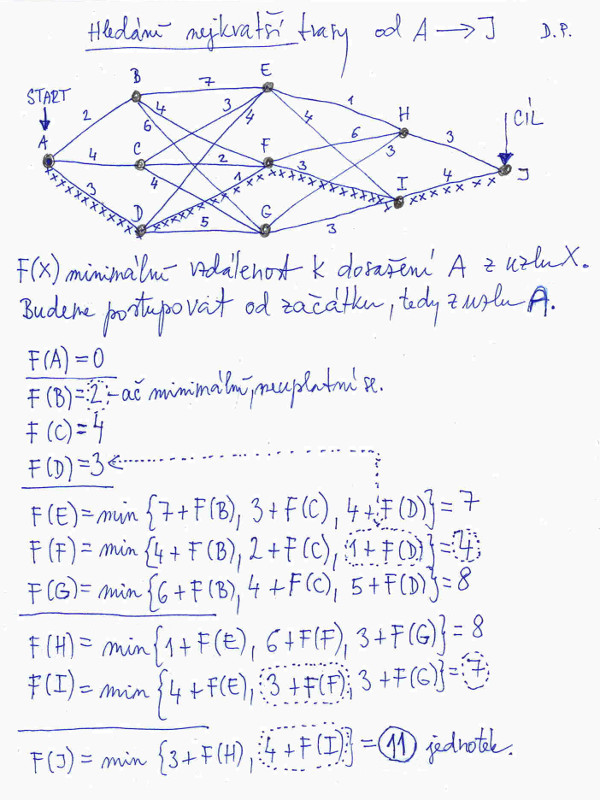 Hledání nejkratší trasy od A → J D.P.
START
A
B
C
D
E
F
G
H
I
J
CÍL
2
4
3
7
4
6
3
2
4
4
1
5
1
4
6
3
3
3
3
4
F(X) minimální vzdálenost k dosažení A z uzlu X.
Budeme postupovat od začátku, tedy z uzlu A.
F(A)=0
F(B)=2 - ač minimální, neuplatní se.
F(C)=4
F(D)=3
F(E)=min{7+F(B), 3+F(C), 4+F(D)}=7
F(F)=min{4+F(B), 2+F(C), 1+F(D)}=4
F(G)=min{6+F(B), 4+F(C), 5+F(D)}=8
F(H)=min{1+F(E), 6+F(F), 3+F(G)}=8
F(I)=min{4+F(E), 3+F(F), 3+F(G)}=7
F(J)=min{3+F(H), 4+F(I)}=11 jednotek.